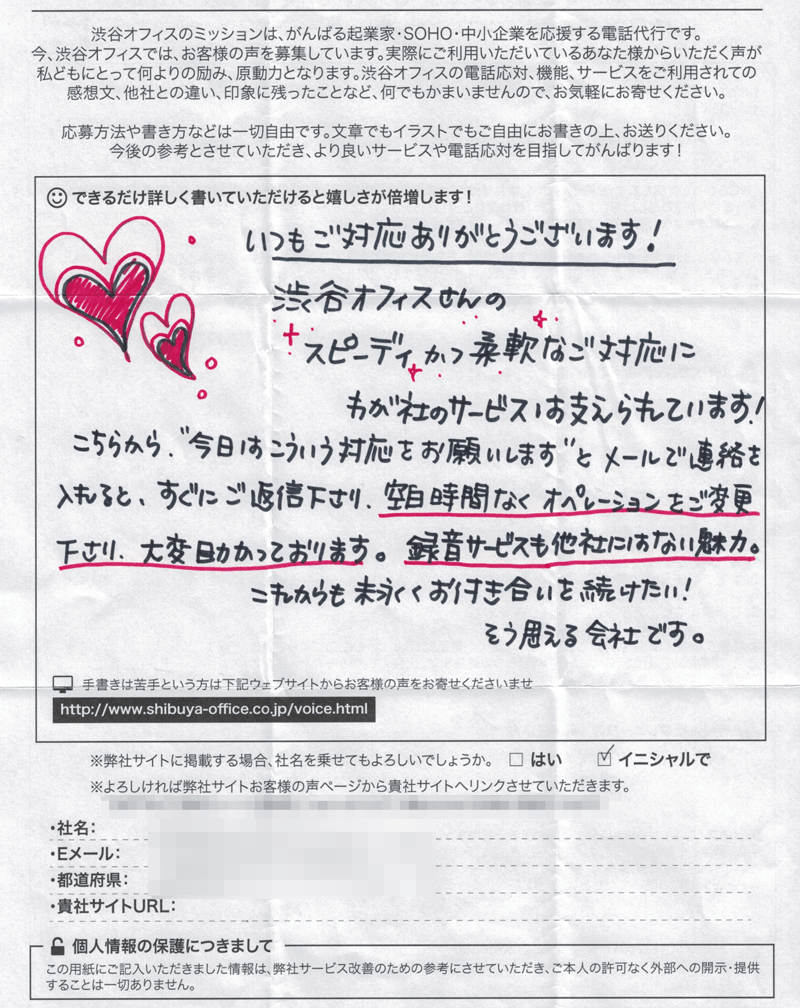 渋谷オフィスのミッションは、がんばる起業家・SOHO・中小企業を応援する電話代行です。
今、渋谷オフィスでは、お客様の声を募集しています。実際にご利用いただいているあなた様からいただく声が
私どもにとって何よりの励み、原動力となります。渋谷オフィスの電話応対、機能、サービスをご利用されての
感想文、他社との違い、印象に残ったことなど、何でもかまいませんので、お気軽にお寄せください。
応募方法や書き方などは一切自由です。文章でもイラストでもご自由にお書きの上、お送りください。
今後の参考とさせていただき、より良いサービスや電話応対を目指してがんばります!
できるだけ詳しく書いていただけると嬉しさが倍増します!
いつもご対応ありがとうございます!
渋谷オフィスさんの
スピーディかつ柔軟なご対応に
わが社のサービスは支えられています!
こちらから、"今日はこういう対応をお願いします"とメールで連絡を
入れると、すぐにご返信下さり、空白時間なくオペレーションをご変更
下さり、大変助かっております。録音サービスも他社にはない魅力。
これからも末永くお付き合いを続けたい!
そう思える会社です。
手書きは苦手という方は下記ウェブサイトからお客様の声をお寄せくださいませ
http://www.shibuya-office.co.jp/voice.html
※弊社サイトに掲載する場合、社名を乗せてもよろしいでしょうか。 □ はい ☑ イニシャルで
※よろしければ弊社サイトお客様の声ページから貴社サイトへリンクさせていただきます。
・社名:
・Eメール:
・都道府県:
・貴社サイトURL:
個人情報の保護につきまして
この用紙にご記入いただきました情報は、弊社サービス改善のための参考にさせていただき、ご本人の許可なく外部への開示・提供
することは一切ありません。